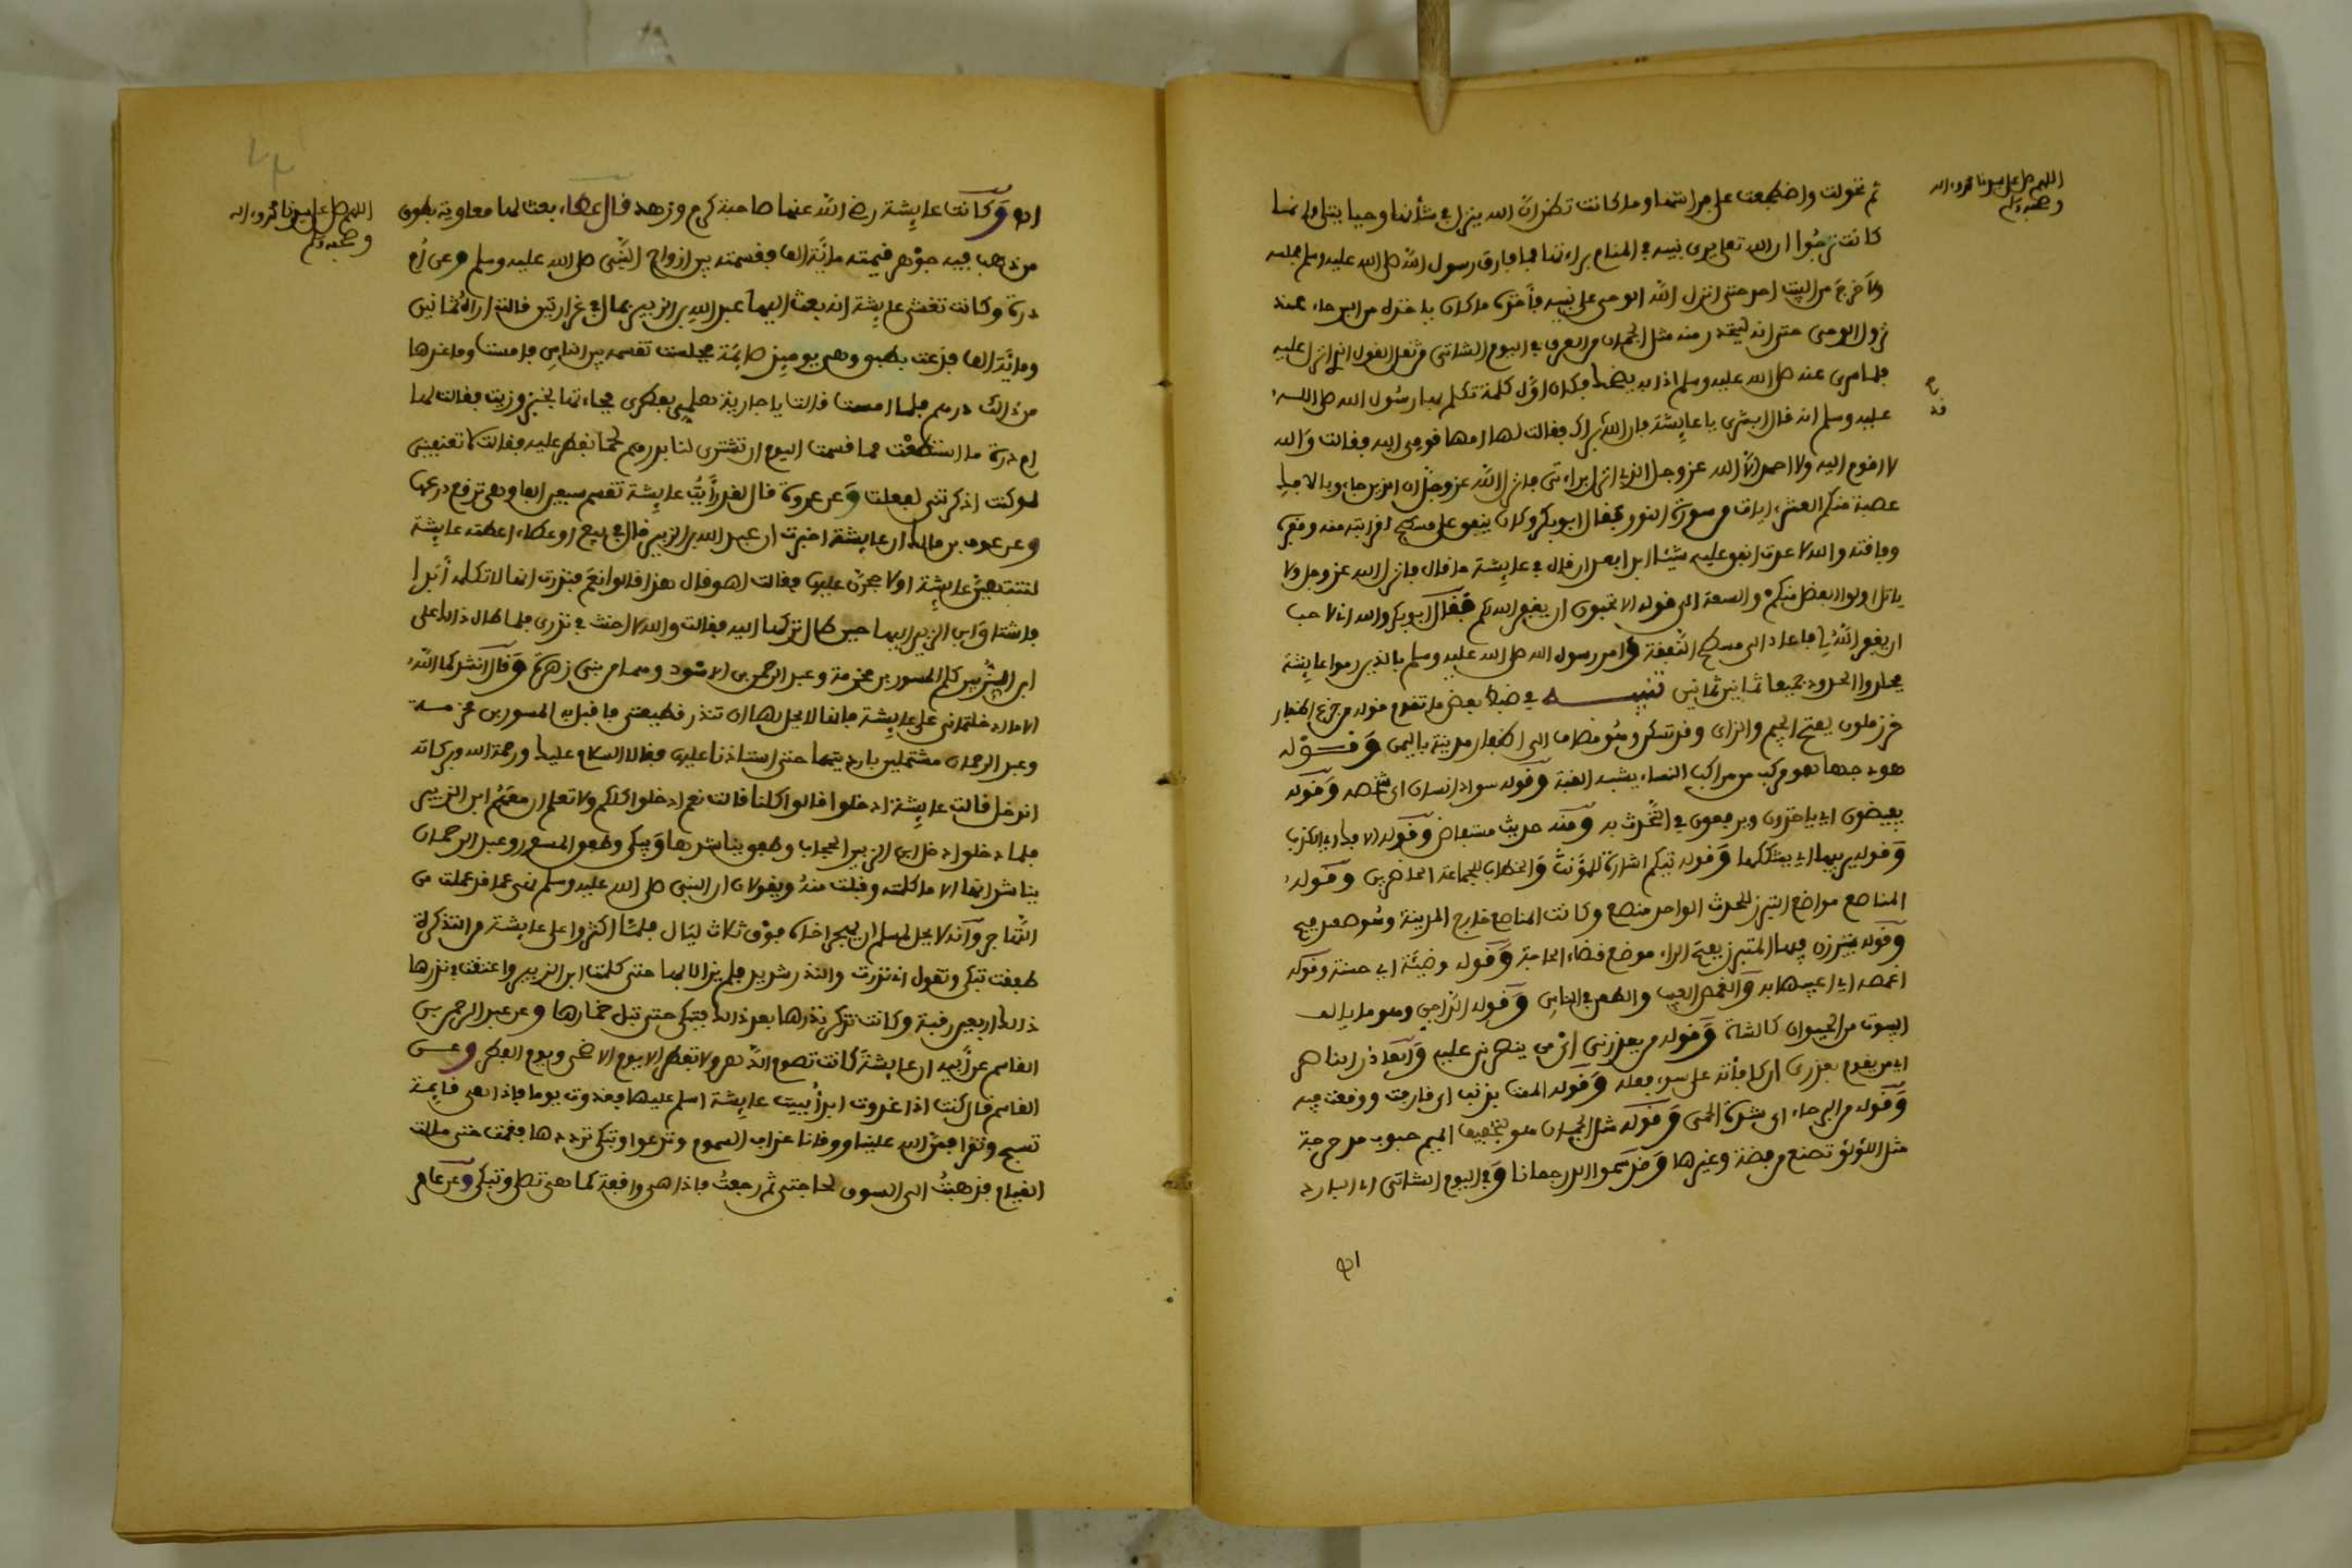 اللهم صل على سيدنا محمد وءاله
وصحبه وسلم
ثم تحولت واضطجعت على فراشها وما كانت تظن ان الله ينزل في شأنها وحيا يتلى وانما
كانت ترجوا ان الله تعلى يرى نبيه في المنام براءتها فما فارق رسول الله صلى الله عليه وسلم مجلسه
ولا خرج من البيت احد حتى انزل الله الوحي على نبيه فأخذه ما كان ياخذه من البرحاء عند
نزول الوحي حتى انه ليتحدر منه مثل الجمان من العرق في اليوم الشاتي من ثقل القول الذي انزل عليه
فلما سري عنه صلى الله عليه وسلم اذا به يضحك فكان اول كلمة تكلم بها رسول الله صلى الله
عليه وسلم انه قال ابشري يا عايشة فان الله براك فقالت لها امها قومي اليه فقالت والله
لا اقوم اليه ولا احمد الا الله عز وجل الذي انزل براءتي فانزل الله عز وجل ان الذين جاءو بالافك
عصبة منكم العشر ءايات من سورة النور فقال ابو بكر وكان ينفق على مسطح لقرابته منه وفقره
وفاقته والله لا عدت انفق عليه شيئا ابدا بعد ان قال في عايشة ما قال فانزل الله عز وجل ولا
ياتل اولوا الفضل منكم والسعة الى قوله الا تحبون ان يغفر الله لكم فقال ابو بكر والله اني لاحب
ان يغفر الله لي فاعاد الى مسطح النفقة وامر رسول الله صلى الله عليه وسلم بالذين رموا عايشة
فجلدوا الحدود جميعا ثمانين ثمانين تنبيه في ضبط بعض ما تقدم قوله من جزع اظفار
خرز ملون بفتح الجيم والزاي وقد تسكن وهو مضاف الى اظفار مدينة باليمن وقوله
هودجها هو مركب من مراكب النساء يشبه القبة وقوله سواد انسان اي شخصه وقوله
يفيضون اي ياخذون ويدفعون في التحدث به ومنه حديث مستفاض وقوله الافك اي الكذب
وقوله يريبها اي يشككها وقوله تيكم اشارة للمؤنث والخطاب للجماعة الحاضرين وقوله
المناصع مواضع التبرز للحدث الواحد منصع وكانت المناصع خارج المدينة وهو صعيد فيح
وقوله يتبرزن فيها المتبرز بفتح الراء موضع قضاء الحاجة وقوله وضيئة اي حسنة وقوله
اغمصه اي اعيبها به والغمص العيب والطعن في الناس وقوله الداجن وهو ما يالف
البيوت من الحيوان كالشاة وقوله من يعذرني اي من ينصرني عليه والعاذر الناصر
اي من يقوم بعذري ان كافأته على سوء فعله وقوله الممت بذنب اي قاربت ووقعت فيه
وقوله من البرحاء اي شدة الحمى وقوله مثل الجمان هو بتخفيف الميم حبوب مدحرجة
مثل اللؤلؤ تصنع من فضة وغيرها وقد سموا الدر جمانا وفي اليوم الشاتي اي البارد
اللهم صل على سيدنا محمد وءاله
وصحبه وسلم
وكانت عايشة رضي الله عنها صاحبة كرم وزهد قال عطاء بعث لها معاوية بطوق
من ذهب فيه جوهر قيمته مائة الف فقسمته بين ازواج النبي صلى الله عليه وسلم وعن ام
درة وكانت تغشى عايشة انه بعث اليها عبد الله بن الزبير بمال في غرارتين قالت اراه ثمانين
ومائة الف فدعت بطبق وهي يوميذ صائمة فجلست تقسمه بين الناس فامست وما عندها
من ذالك درهم فلما امست قالت يا جارية هلمي بفطري فجاءتها بخبز وزيت فقالت لها
ام درة ما استطعت مما قسمت اليوم ان تشتري لنا بدرهم لحما نفطر عليه فقالت لا تعنفيني
لو كنت اذكرتني لفعلت وعن عروة قال لقد رأيت عايشة تقسم سبعين الفا وهي ترقع درعها
وعن عوف بن مالك ان عايشة اخبرت ان عبد الله بن الزبير قال في بيع او عطاء اعطته عايشة
لتنتهين عايشة او لاحجرن عليها فقالت اهو قال هذا قالوا نعم فنذرت انها لا تكلمه أبدا
فاشتد على ابن الزبير اليها حين طال تركها اليه فقالت والله لا احنث في نذري فلما طال ذالك على
ابن الزبير كلم المسور بن مخرمة وعبد الرحمن بن الاسود وهما من بني زهرة وقال انشدكما الله
الا ما ادخلتماني على عايشة فانها لا يحل لها ان تنذر قطيعتي فاقبل به المسور بن مخرمة
وعبد الرحمان مشتملين بارديتهما حتى استاذنا عليها فقالا السلام عليك ورحمة الله وبركاته
اندخل قالت عايشة ادخلوا قالوا كلنا قالت نعم ادخلوا كلكم ولا تعلم ان معهم ابن الزبير
فلما دخلوا دخل ابن الزبير الحجاب وطفق يناشدها ويبكي وطفق المسور وعبد الرحمان
يناشدانها الا ما كلمته وقبلت منه ويقولان ان النبي صلى الله عليه وسلم نهى عما قد عملت من
التهاجر وأنه لا يحل لمسلم ان يهجر اخاه فوق ثلاث ليال فلما اكثروا على عايشة من التذكرة
طفقت تبكي وتقول اني نذرت والنذر شديد فلم يزالا بها حتى كلمت ابن الزبير واعتقت في نذرها
ذالك اربعين رقبة وكانت تذكر نذرها بعد ذالك فتبكي حتى تبل خمارها وعن عبد الرحمن بن
القاسم عن أبيه ان عايشة كانت تصوم الدهر ولا تفطر الا يوم الاضحى ويوم الفطر وعن
القاسم قال كنت اذا غدوت ابدأ ببيت عايشة اسلم عليها فغدوت يوما فاذا هي قايمة
تسبح وتقرا فمن الله علينا ووقانا عذاب السموم وتدعوا وتبكي ترددها فقمت حتى مللت
القيام فذهبت الى السوق لحاجتي ثم رجعت فاذا هي واقفة كما هي تصلي وتبكي وعن عامر